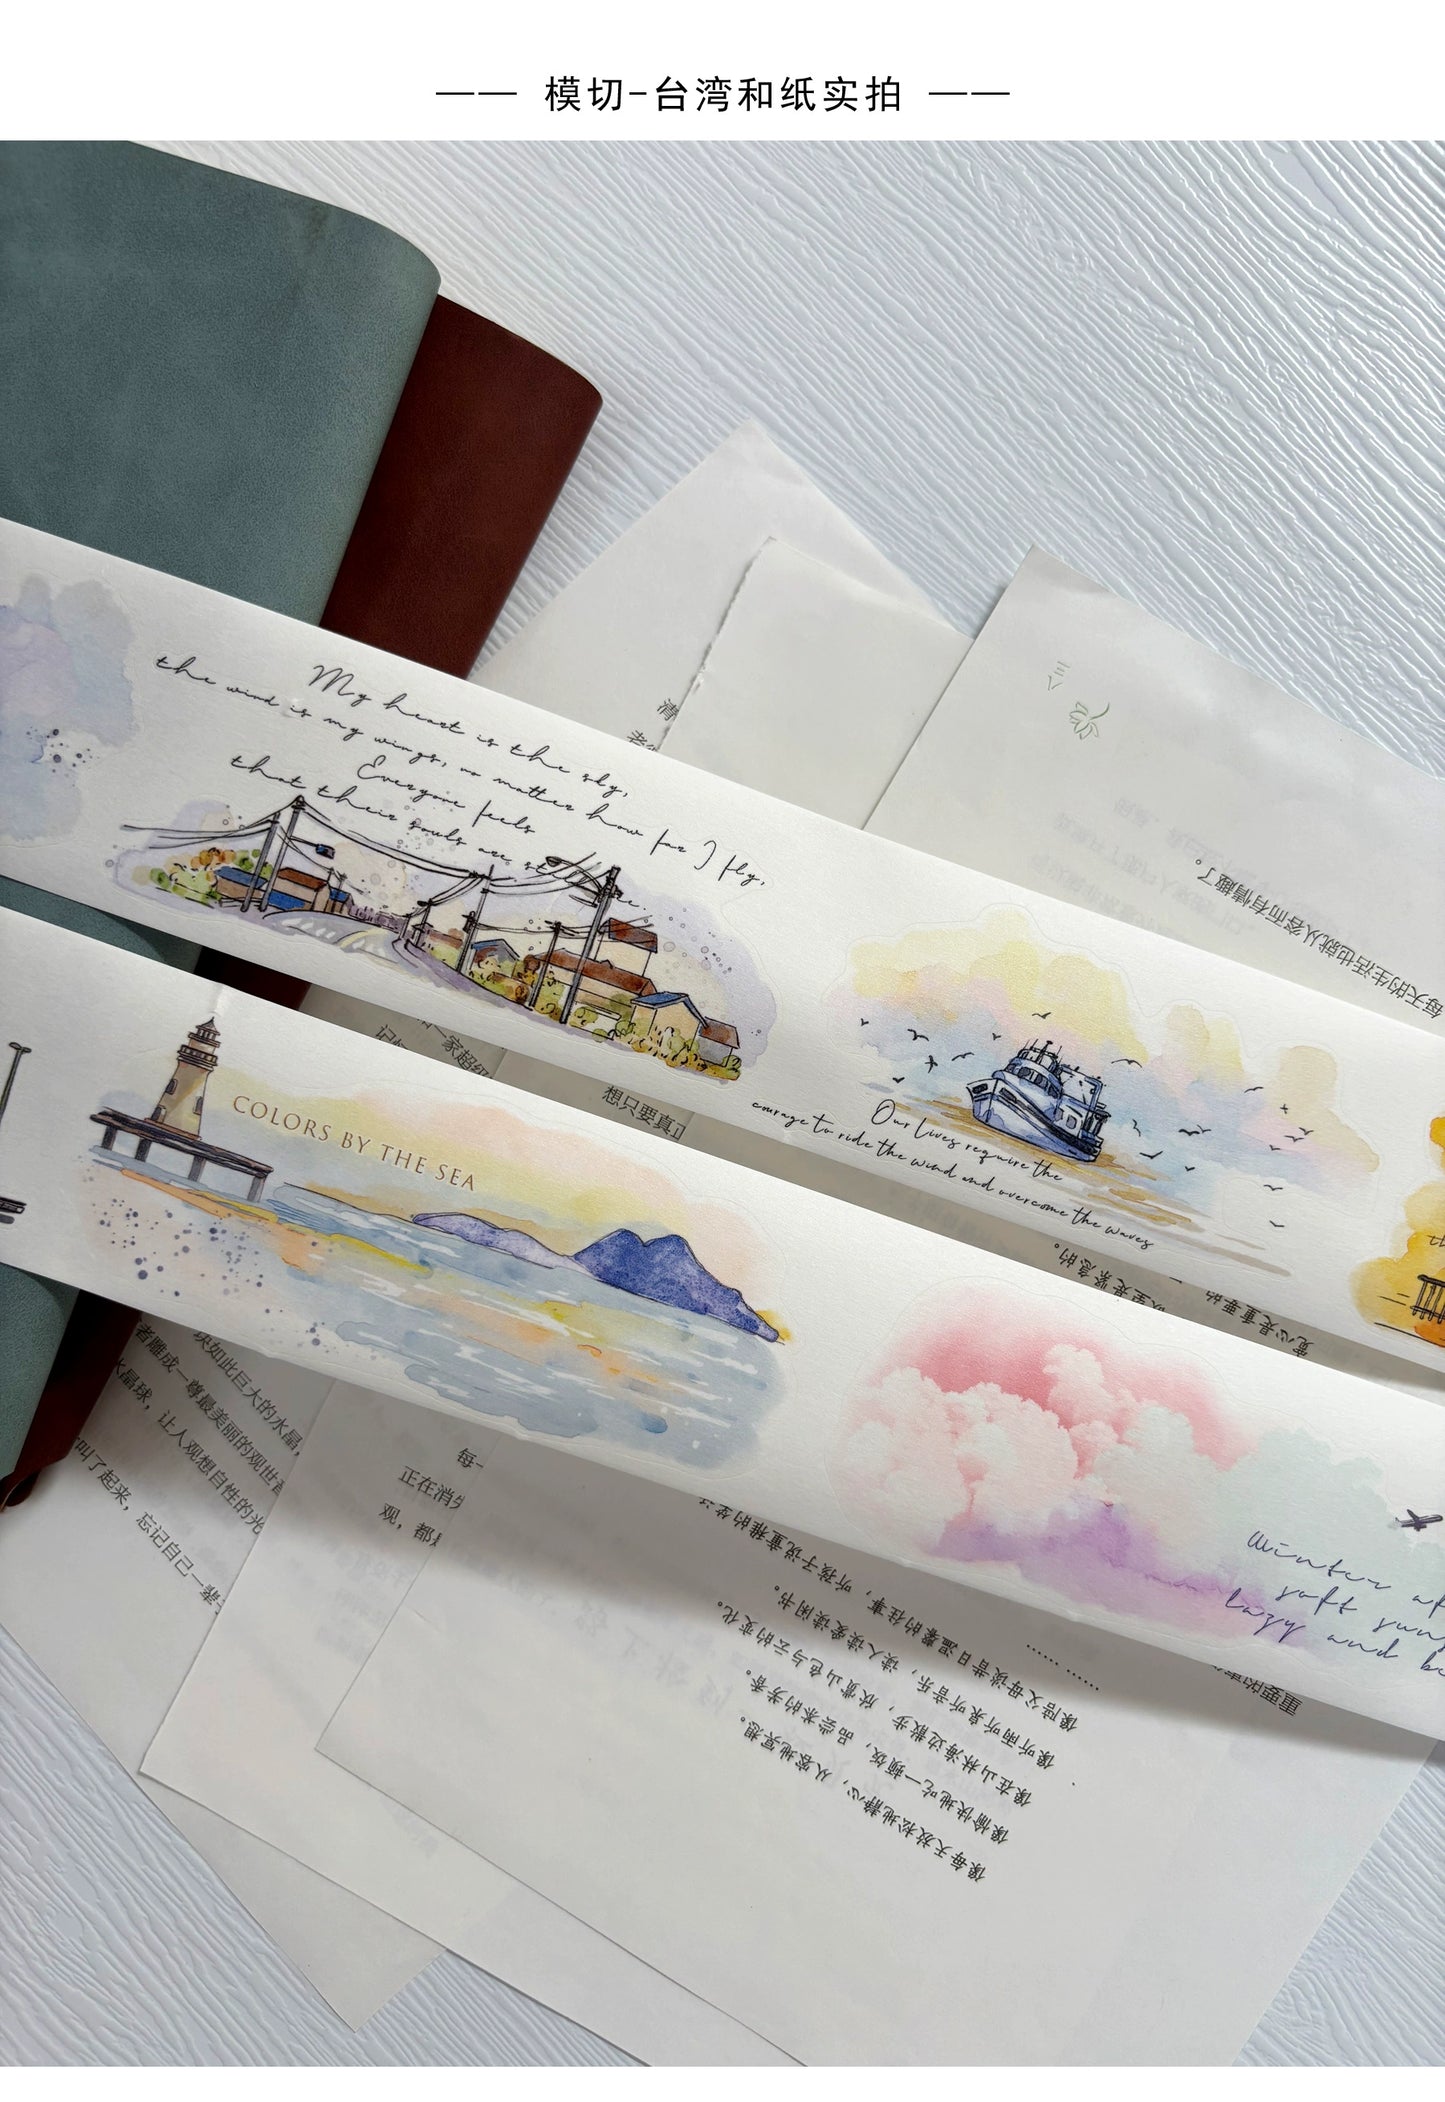 —— 模切-台湾和纸实拍 ——
My heart is the sky,
the wind is my wings, no matter how far I fly,
Everyone feels
that their souls are still
Our lives require the
courage to ride the wind and overcome the waves
COLORS BY THE SEA
Winter
soft
lazy and
三
每天的生活也就从容而有情趣了。
清
家超级
想只要真正
宽心是重要的
块如此巨大的水晶，
者雕成一尊最美丽的观世音
水晶球，让人观想自性的光
叫了起来，忘记自己一辈
每一
正在消失
观，都
像每天放松地静心，从容地冥想。
像愉快地吃一顿饭，品尝茶的芳香。
像在山林海边散步，欣赏山色与云的变化。
像听雨听泉听音乐，读人读爱读闲书。
像陪父母谈昔日温馨的往事，听孩子说童稚的笑话
…… ……